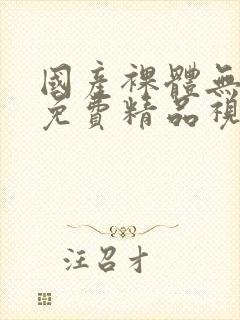 國產裸體無
免費精品視
汪召才